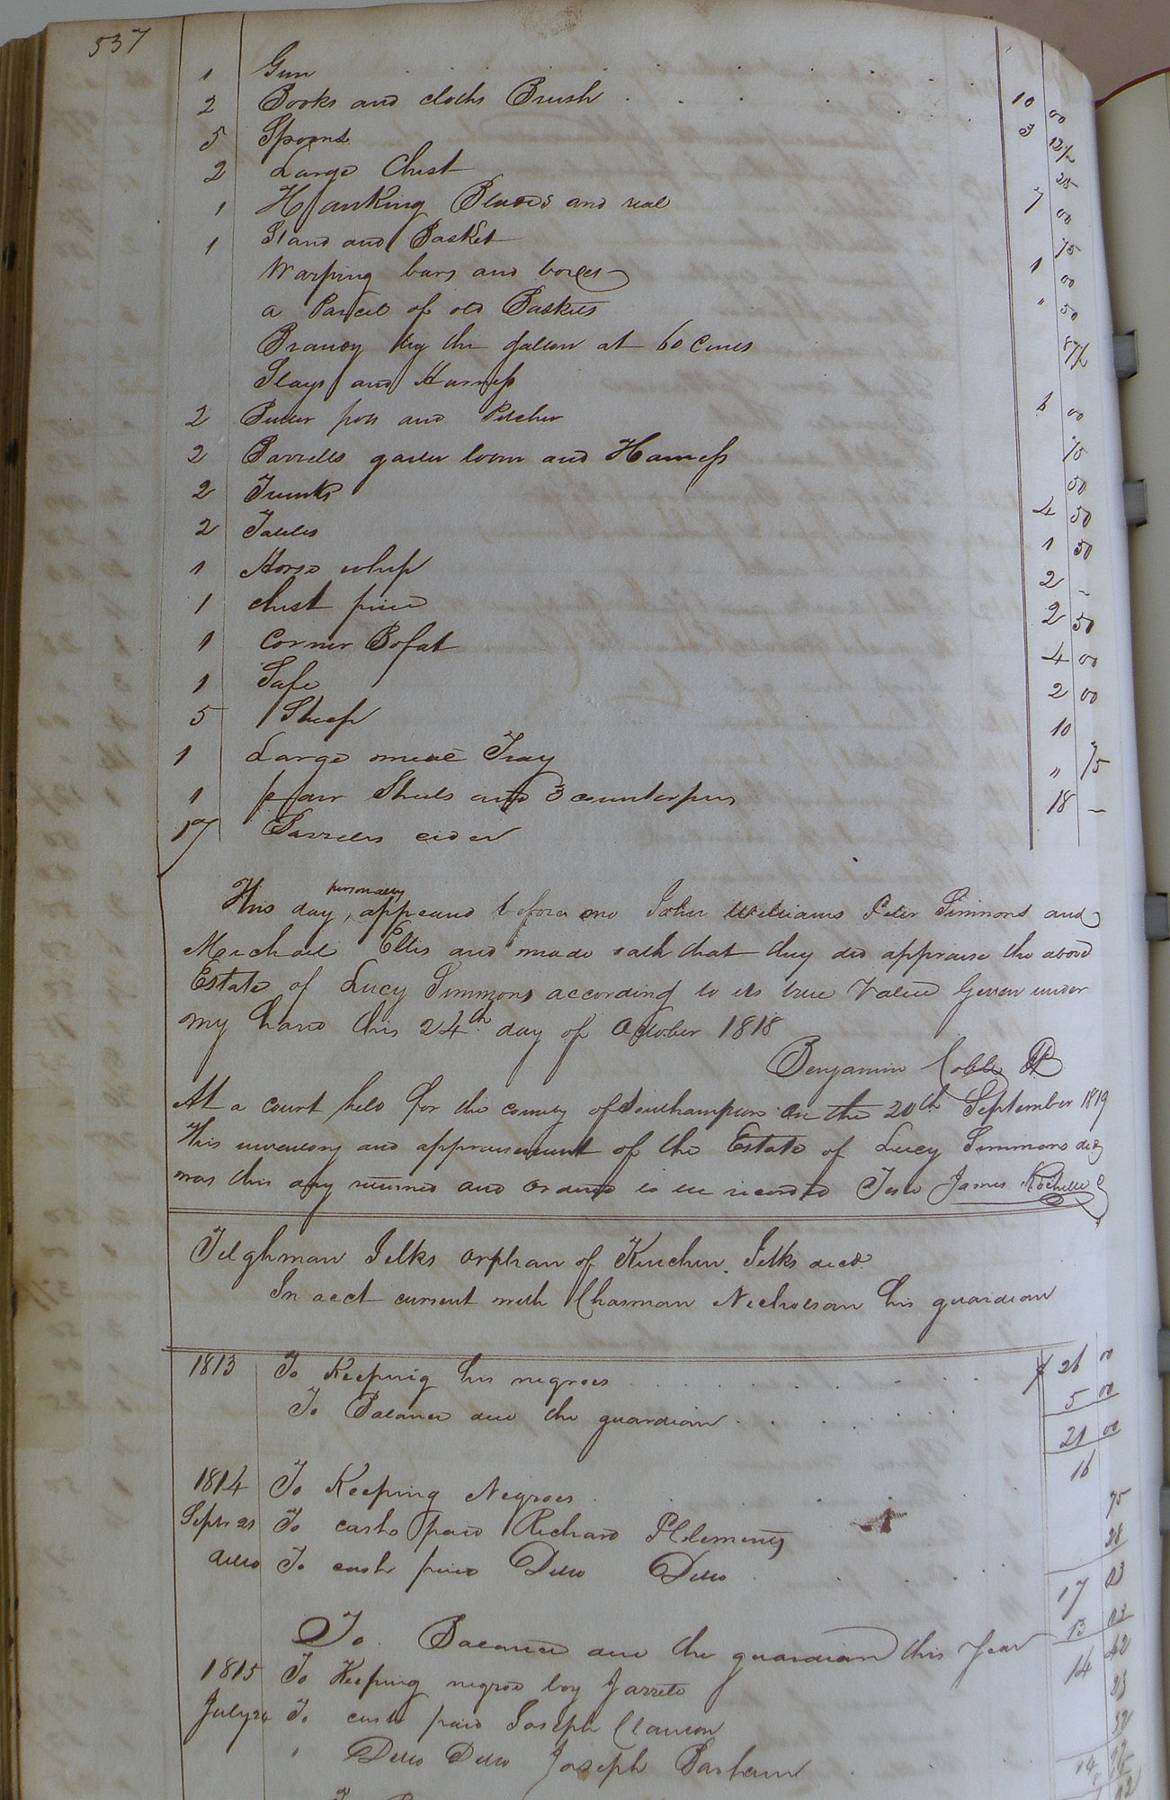 537
1 Gun
2 Books and cloths Brush 10 00
5 Spoons 3 12½
2 Large Chest 25
1 Hanking Blades and real 7 00
1 Stand and Basket 75
Warping bars and boxes 1 00
a Parcel of old Baskets " 50
Brandy by the gallon at 60 Cents 87½
Slays and Harness
2 Butter pots and Pitcher 6 00
2 Barrells garler loom and Harness 75
2 Trunks 50
2 Tables 4 50
1 Horse whip 1 50
1 chest pine 2 -
1 corner Bofat 2 50
1 Safe 4 00
5 Sheep 2 00
1 Large meat Tray 10
1 pair Sheets and 3 counterpins " 75
17 Barrells cider 18 -
This day personally appeared before me John Williams Peter Simmons and
Michael Ellis and made oath that they did appraise the above
Estate of Lucy Simmons according to its true Value Given under
my hand this 24th day of October 1818
Benjamin Cobb JP
At a court held for the county of Southampton on the 20th September 1819
This inventory and appraisement of the Estate of Lucy Simmons decd
was this day returned and ordered to be recorded Teste James Rochelle C
Tilghman Jelks orphan of Kinchin Jelks decd
In acct current with Charman Nicholson his guardian
1813 To Keeping his negroes $ 26 00
To Balance due the guardian 5 00
21 00
1814 To Keeping Negroes 16
Septr 21 To cash paid Richard P Clements 75
ditto To cash paid Ditto Ditto 28
17 03
To Balance due the guardian this year 13
1815 To Keeping negroe boy Jarrett 14
July 24 To cash paid Joseph Claunon
" Ditto Ditto Joseph Barham